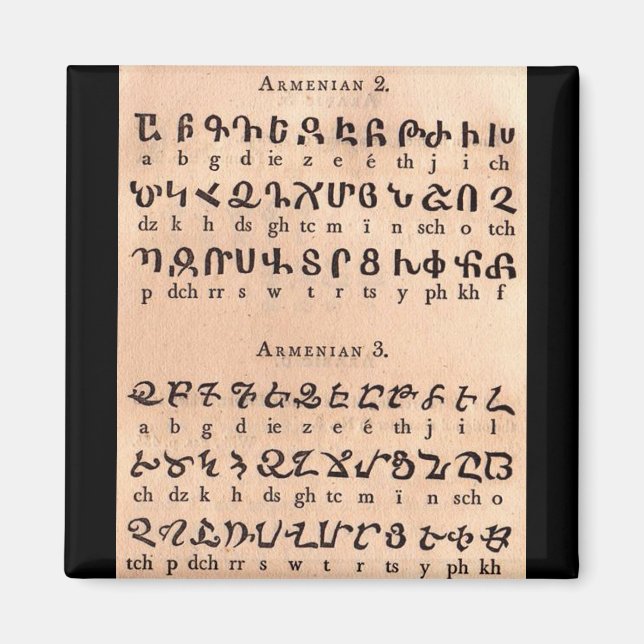 ARMENIAN 2.
Ա Բ Գ Դ Ե Զ Է Ը Թ Ժ Ի Խ
a b g d ie z e é th j i ch
Ծ Կ Հ Ձ Ղ Ճ Մ Յ Ն Շ Ո Չ
dz k h ds gh tc m ï n sch o tch
Պ Ջ Ռ Ս Վ Տ Ր Ց Ւ Փ Ք Ֆ
p dch rr s w t r ts y ph kh f
ARMENIAN 3.
Ա Բ Գ Դ Ե Զ Է Ը Թ Ժ Ի Լ
a b g d ie z e é th j i l
Խ Ծ Կ Հ Ձ Ղ Ճ Մ Յ Ն Շ Ո
ch dz k h ds gh tc m ï n sch o
Չ Պ Ջ Ռ Ս Վ Տ Ր Ց Ւ Փ Ք
tch p dch rr s w t r ts y ph kh